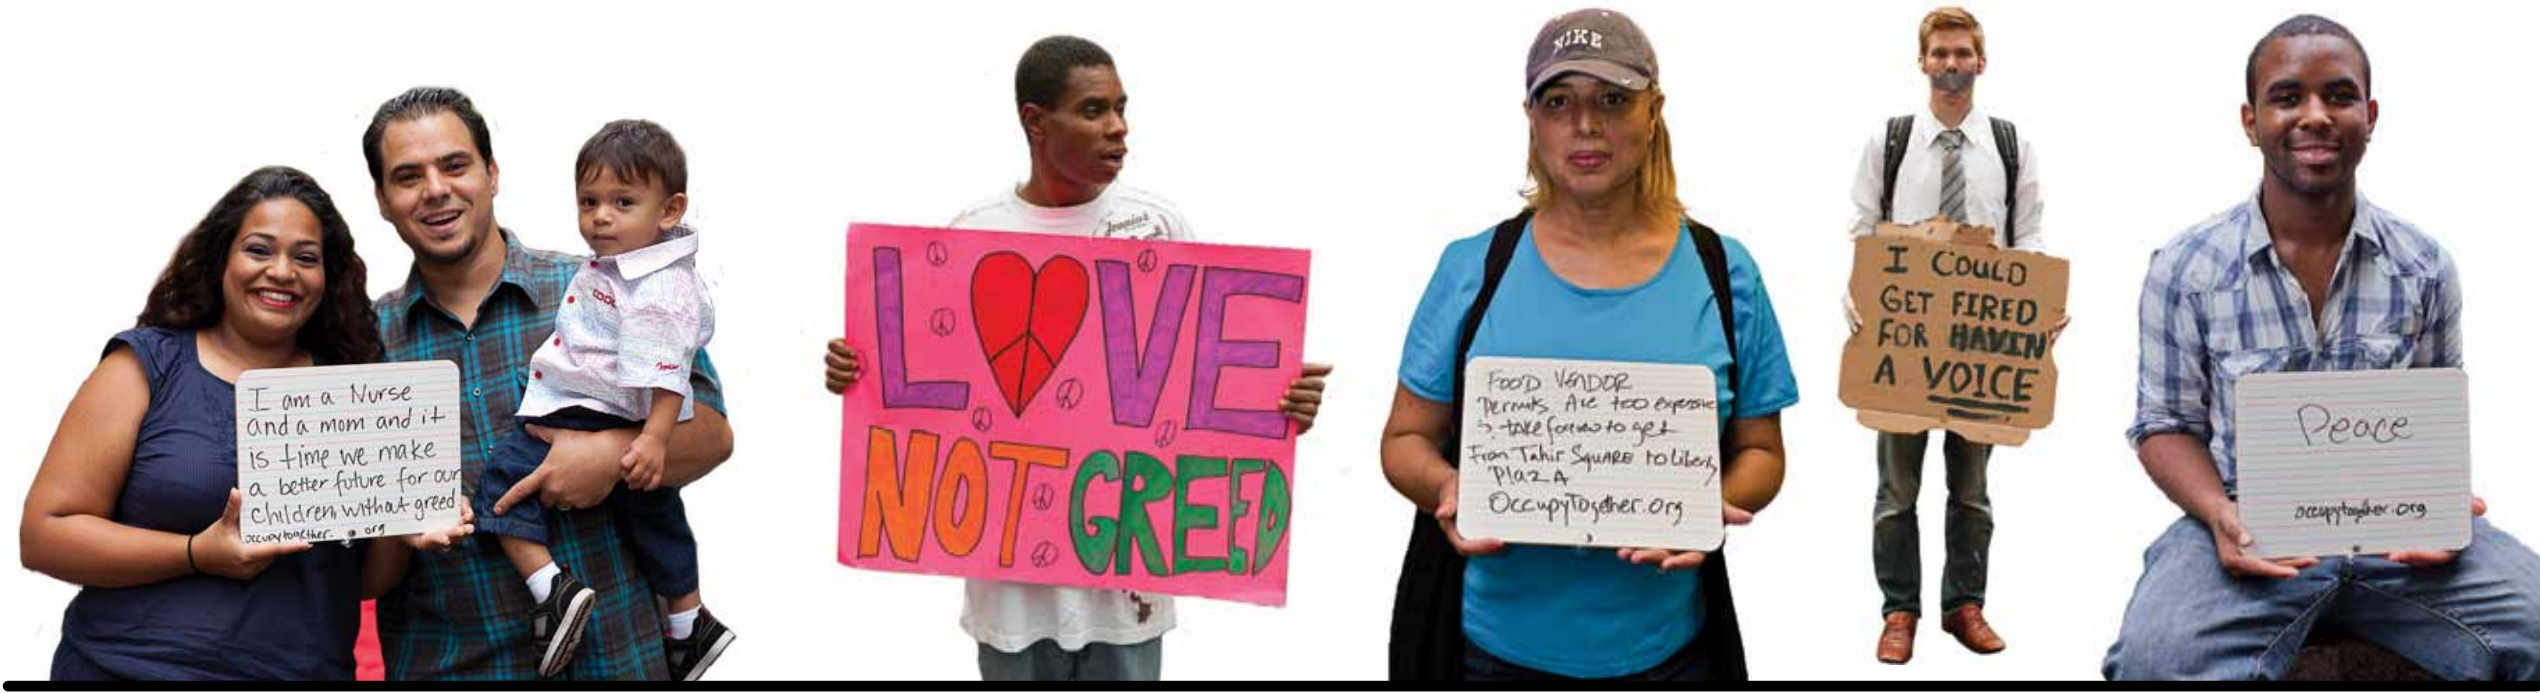 I am a Nurse
and a mom and it
is time we make
a better future for our
children, without greed.
occupytogether. org
COOL
LOVE
NOT GREED
NIKE
FOOD VENDOR
Permits Are too expensive
take forever to get
From Tahir SQUARE to Liberty
PlazA
OccupyTogether.org
I COULD
GET FIRED
FOR HAVIN
A VOICE
Peace
occupytogether.org